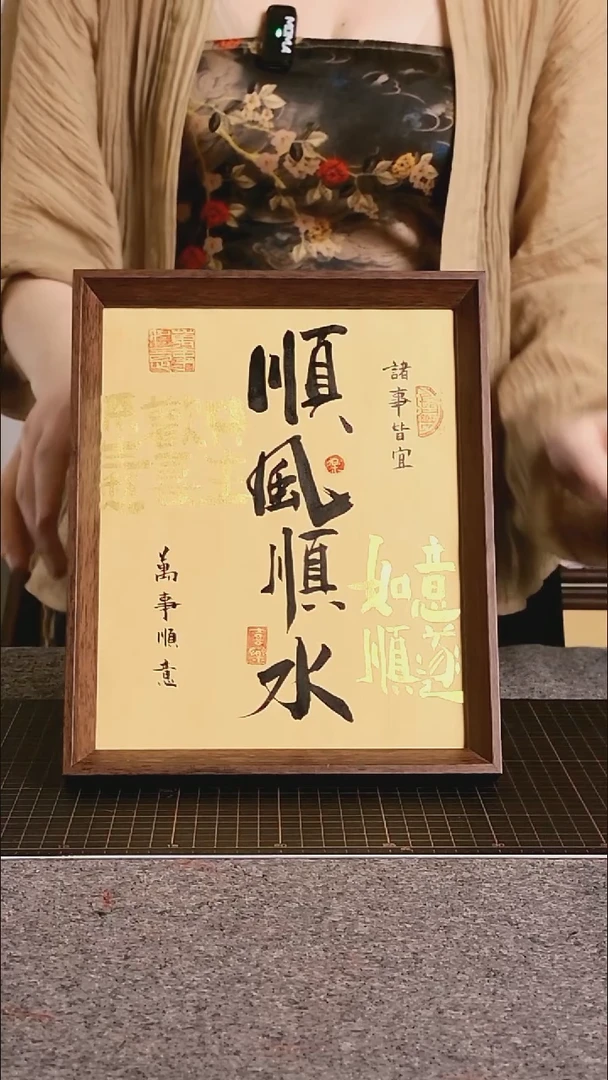 諸事皆宜
如意
順遂
順風順水
喜樂
萬事順意